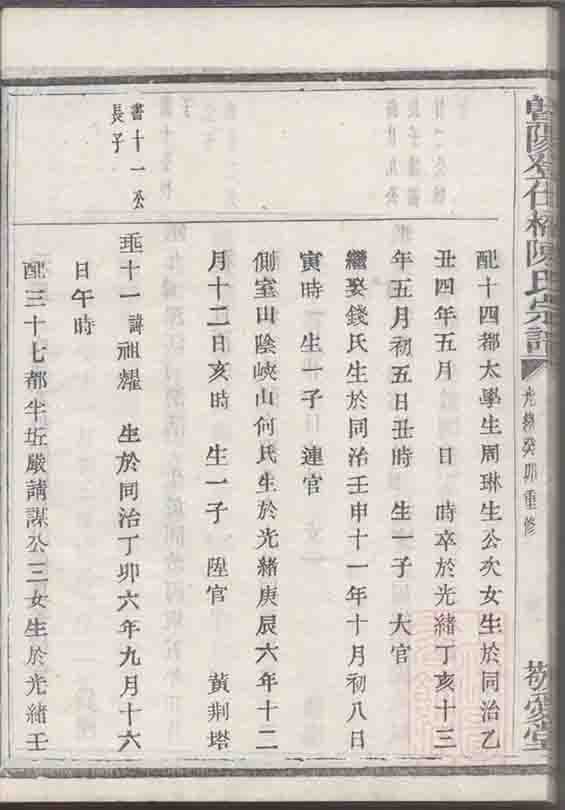 暨陽登仕橋陳氏宗譜
光緒癸卯重修
敬愛堂
配十四都太學生周琳生公次女生於同治乙
丑四年五月 日 時卒於光緒丁亥十三
年五月初五日丑時 生一子 大官
繼娶錢氏生於同治壬申十一年十月初八日
寅時 生一子 連官
側室山陰峽山何氏生於光緒庚辰六年十二
月十二日亥時 生一子 陞官 黃荆塔
書十一公
長子
垂十一諱祖耀 生於同治丁卯六年九月十六
日午時
配三十七都半坵嚴請謀公三女生於光緒壬